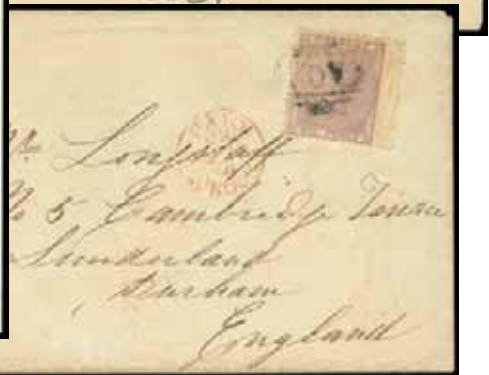 Longstaff
No 5 Cambridge Terrace
Sunderland
Durham
England